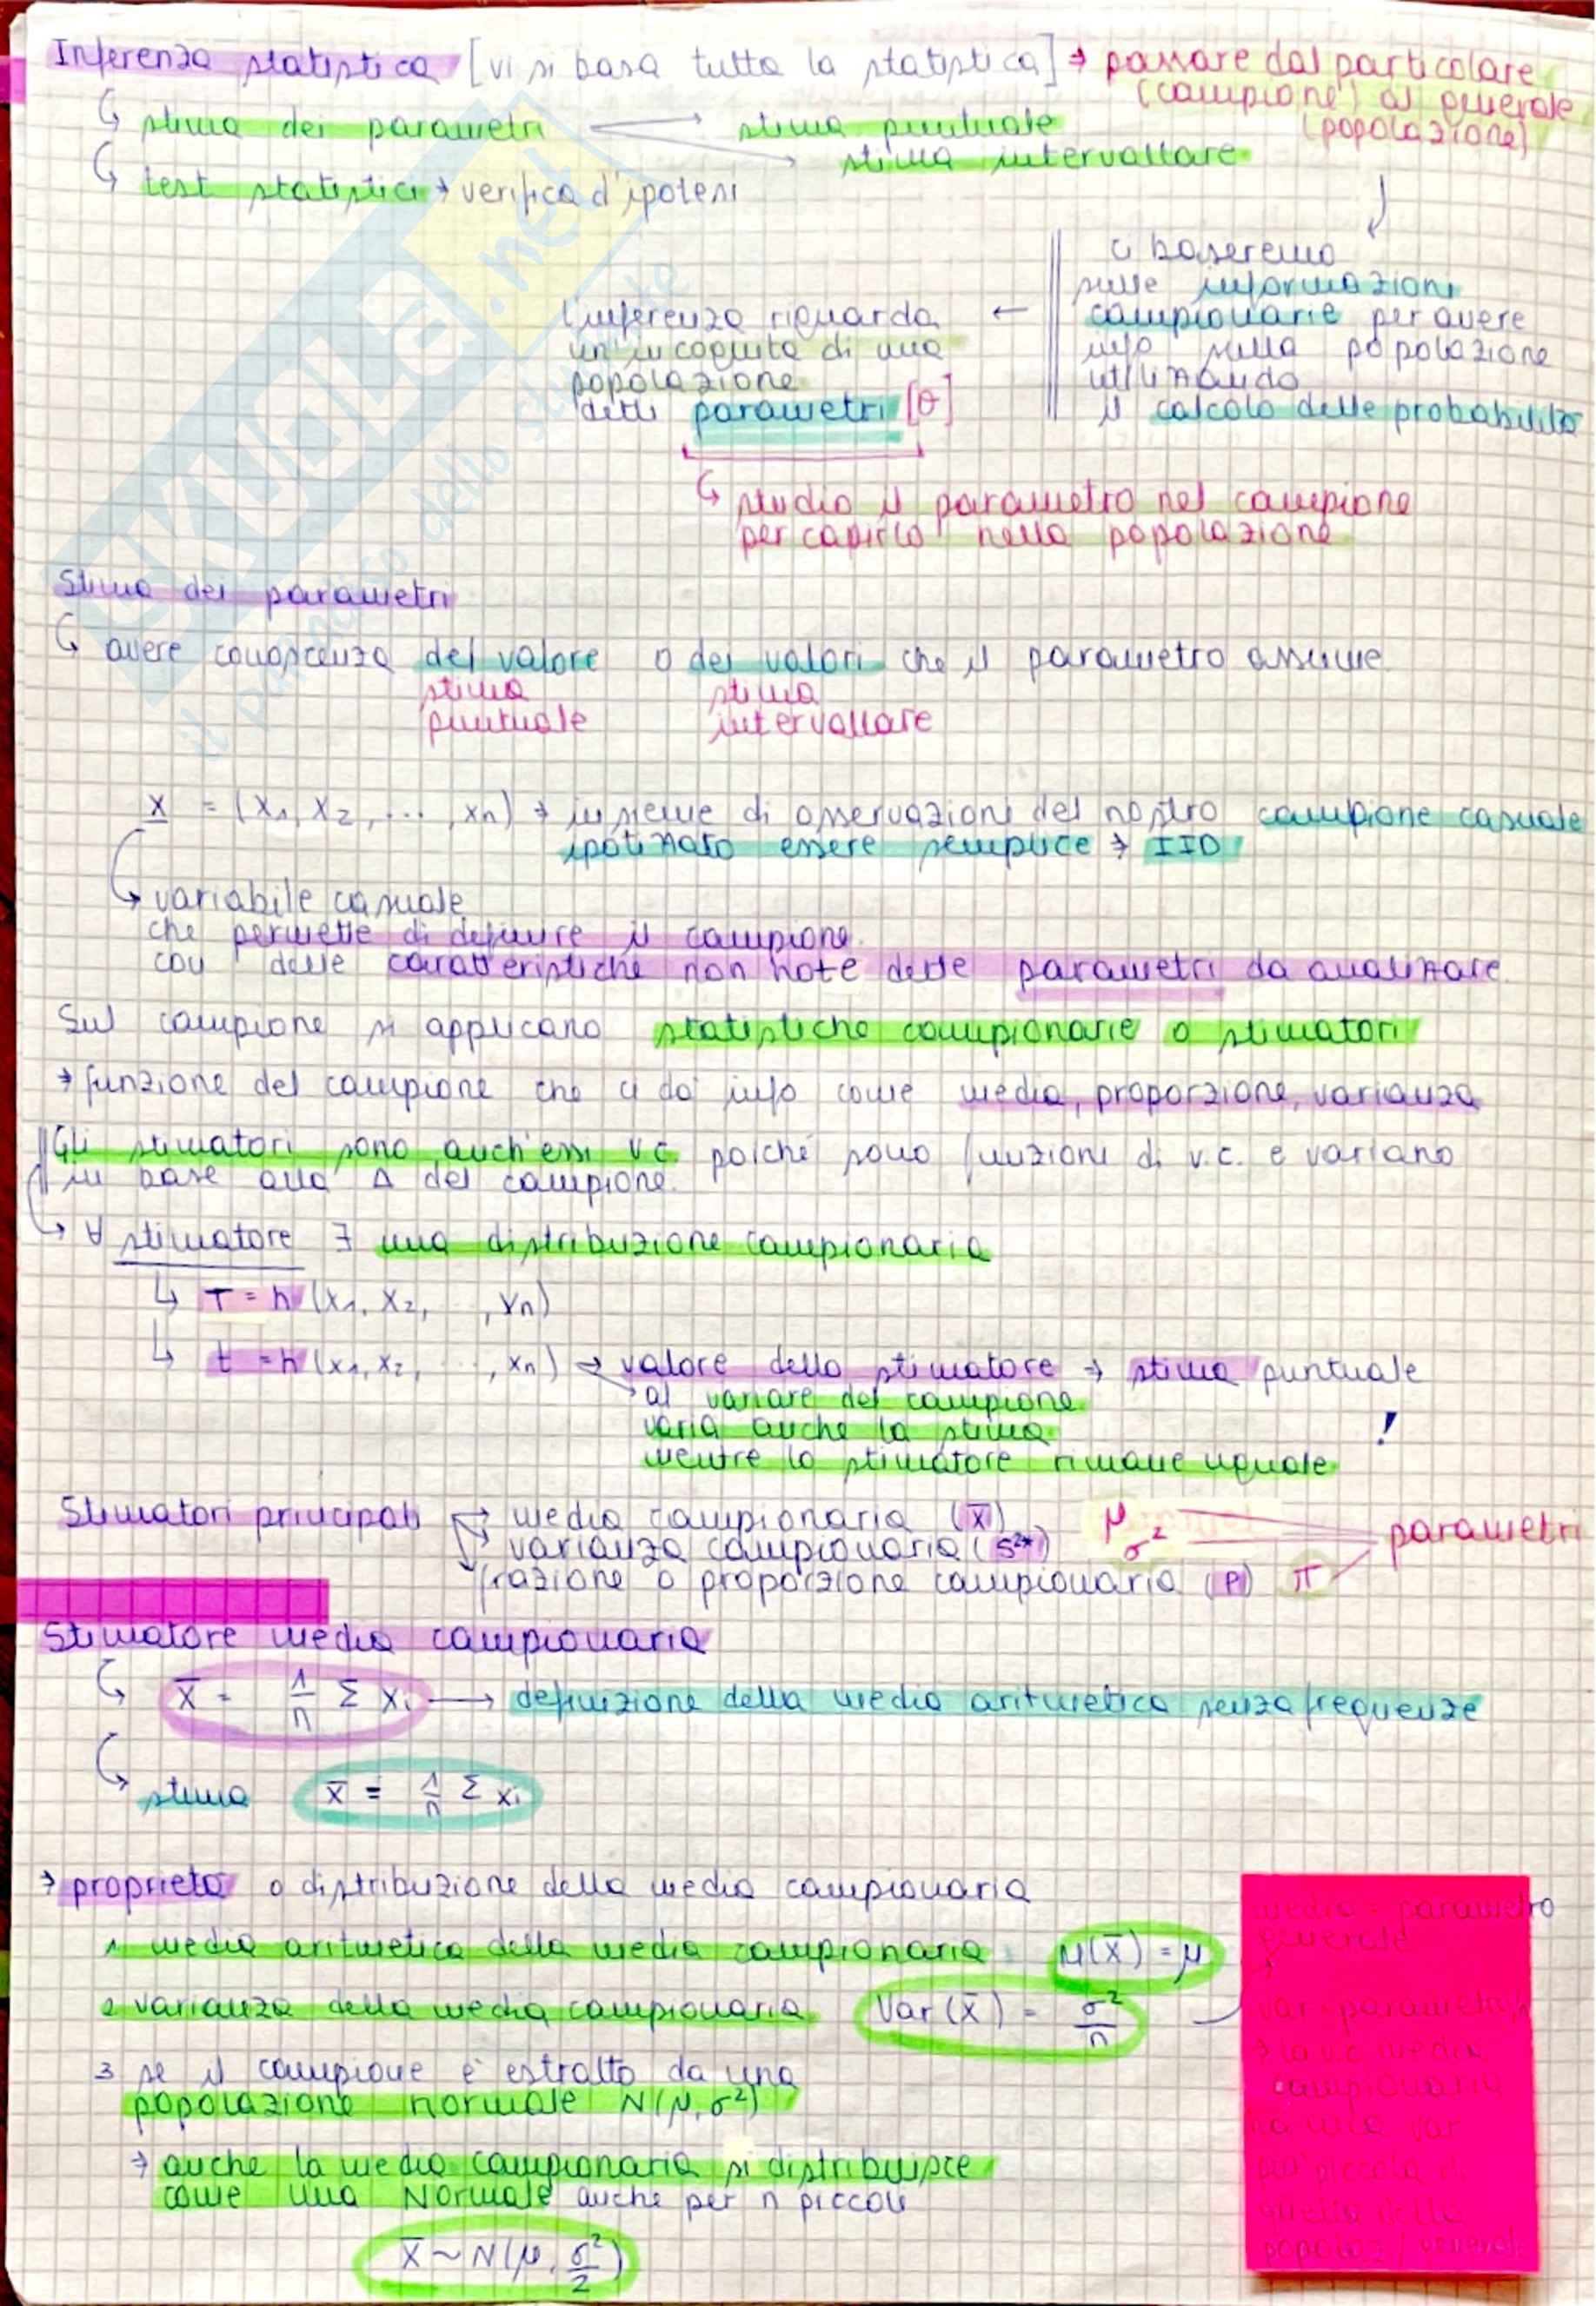 Inferenza statistica [vi si basa tutta la statistica] → passare dal particolare
(campione) al generale
(popolazione)
↳ stima dei parametri
stima puntuale
stima intervallare
↳ test statistici → verifica d'ipotesi
ci baseremo
sulle informazioni
campionarie per avere
info sulla popolazione
utilizzando
il calcolo delle probabilità
l'inferenza riguarda
un'incognita di una
popolazione
detti parametri [θ]
↳ studio il parametro nel campione
per capirlo nella popolazione
Stima dei parametri
↳ avere conoscenza del valore o dei valori che il parametro assume
stima puntuale
stima intervallare
X = (X1, X2, ..., Xn) → insieme di osservazioni del nostro campione casuale
ipotizzato essere semplice → IID
↳ variabile casuale
che permette di definire il campione
con delle caratteristiche non note dette parametri da analizzare
Sul campione si applicano statistiche campionarie o stimatori
→ funzione del campione che ci dà info come media, proporzione, varianza
Gli stimatori sono anch'essi v.c. poiché sono funzioni di v.c. e variano
in base alla Δ del campione.
↳ ∀ stimatore ∃ una distribuzione campionaria
↳ T = h (X1, X2, , Xn)
↳ t = h (x1, x2, ..., xn) → valore dello stimatore → stima puntuale
al variare del campione
varia anche la stima
mentre lo stimatore rimane uguale
!
Stimatori principali → media campionaria (X̄)
varianza campionaria (S²*)
frazione o proporzione campionaria (P)
μ
σ²
π
parametri
Stimatore media campionaria
↳ X̄ = 1/n Σ Xi → definizione della media aritmetica senza frequenze
↳ stima x̄ = 1/n Σ xi
→ proprietà o distribuzione della media campionaria
1 media aritmetica della media campionaria M(X̄) = μ
2 varianza della media campionaria Var (X̄) = σ²/n
3 se il campione è estratto da una
popolazione normale N(μ, σ²)
→ anche la media campionaria si distribuisce
come una Normale anche per n piccoli
X̄ ~ N(μ, σ²/2)
media = parametro
generale
var parametri
→ la v.c. media
campionaria
ha una var
più piccola di
quella della
popolaz / general
SKUOLA.net
il paradiso dello studente